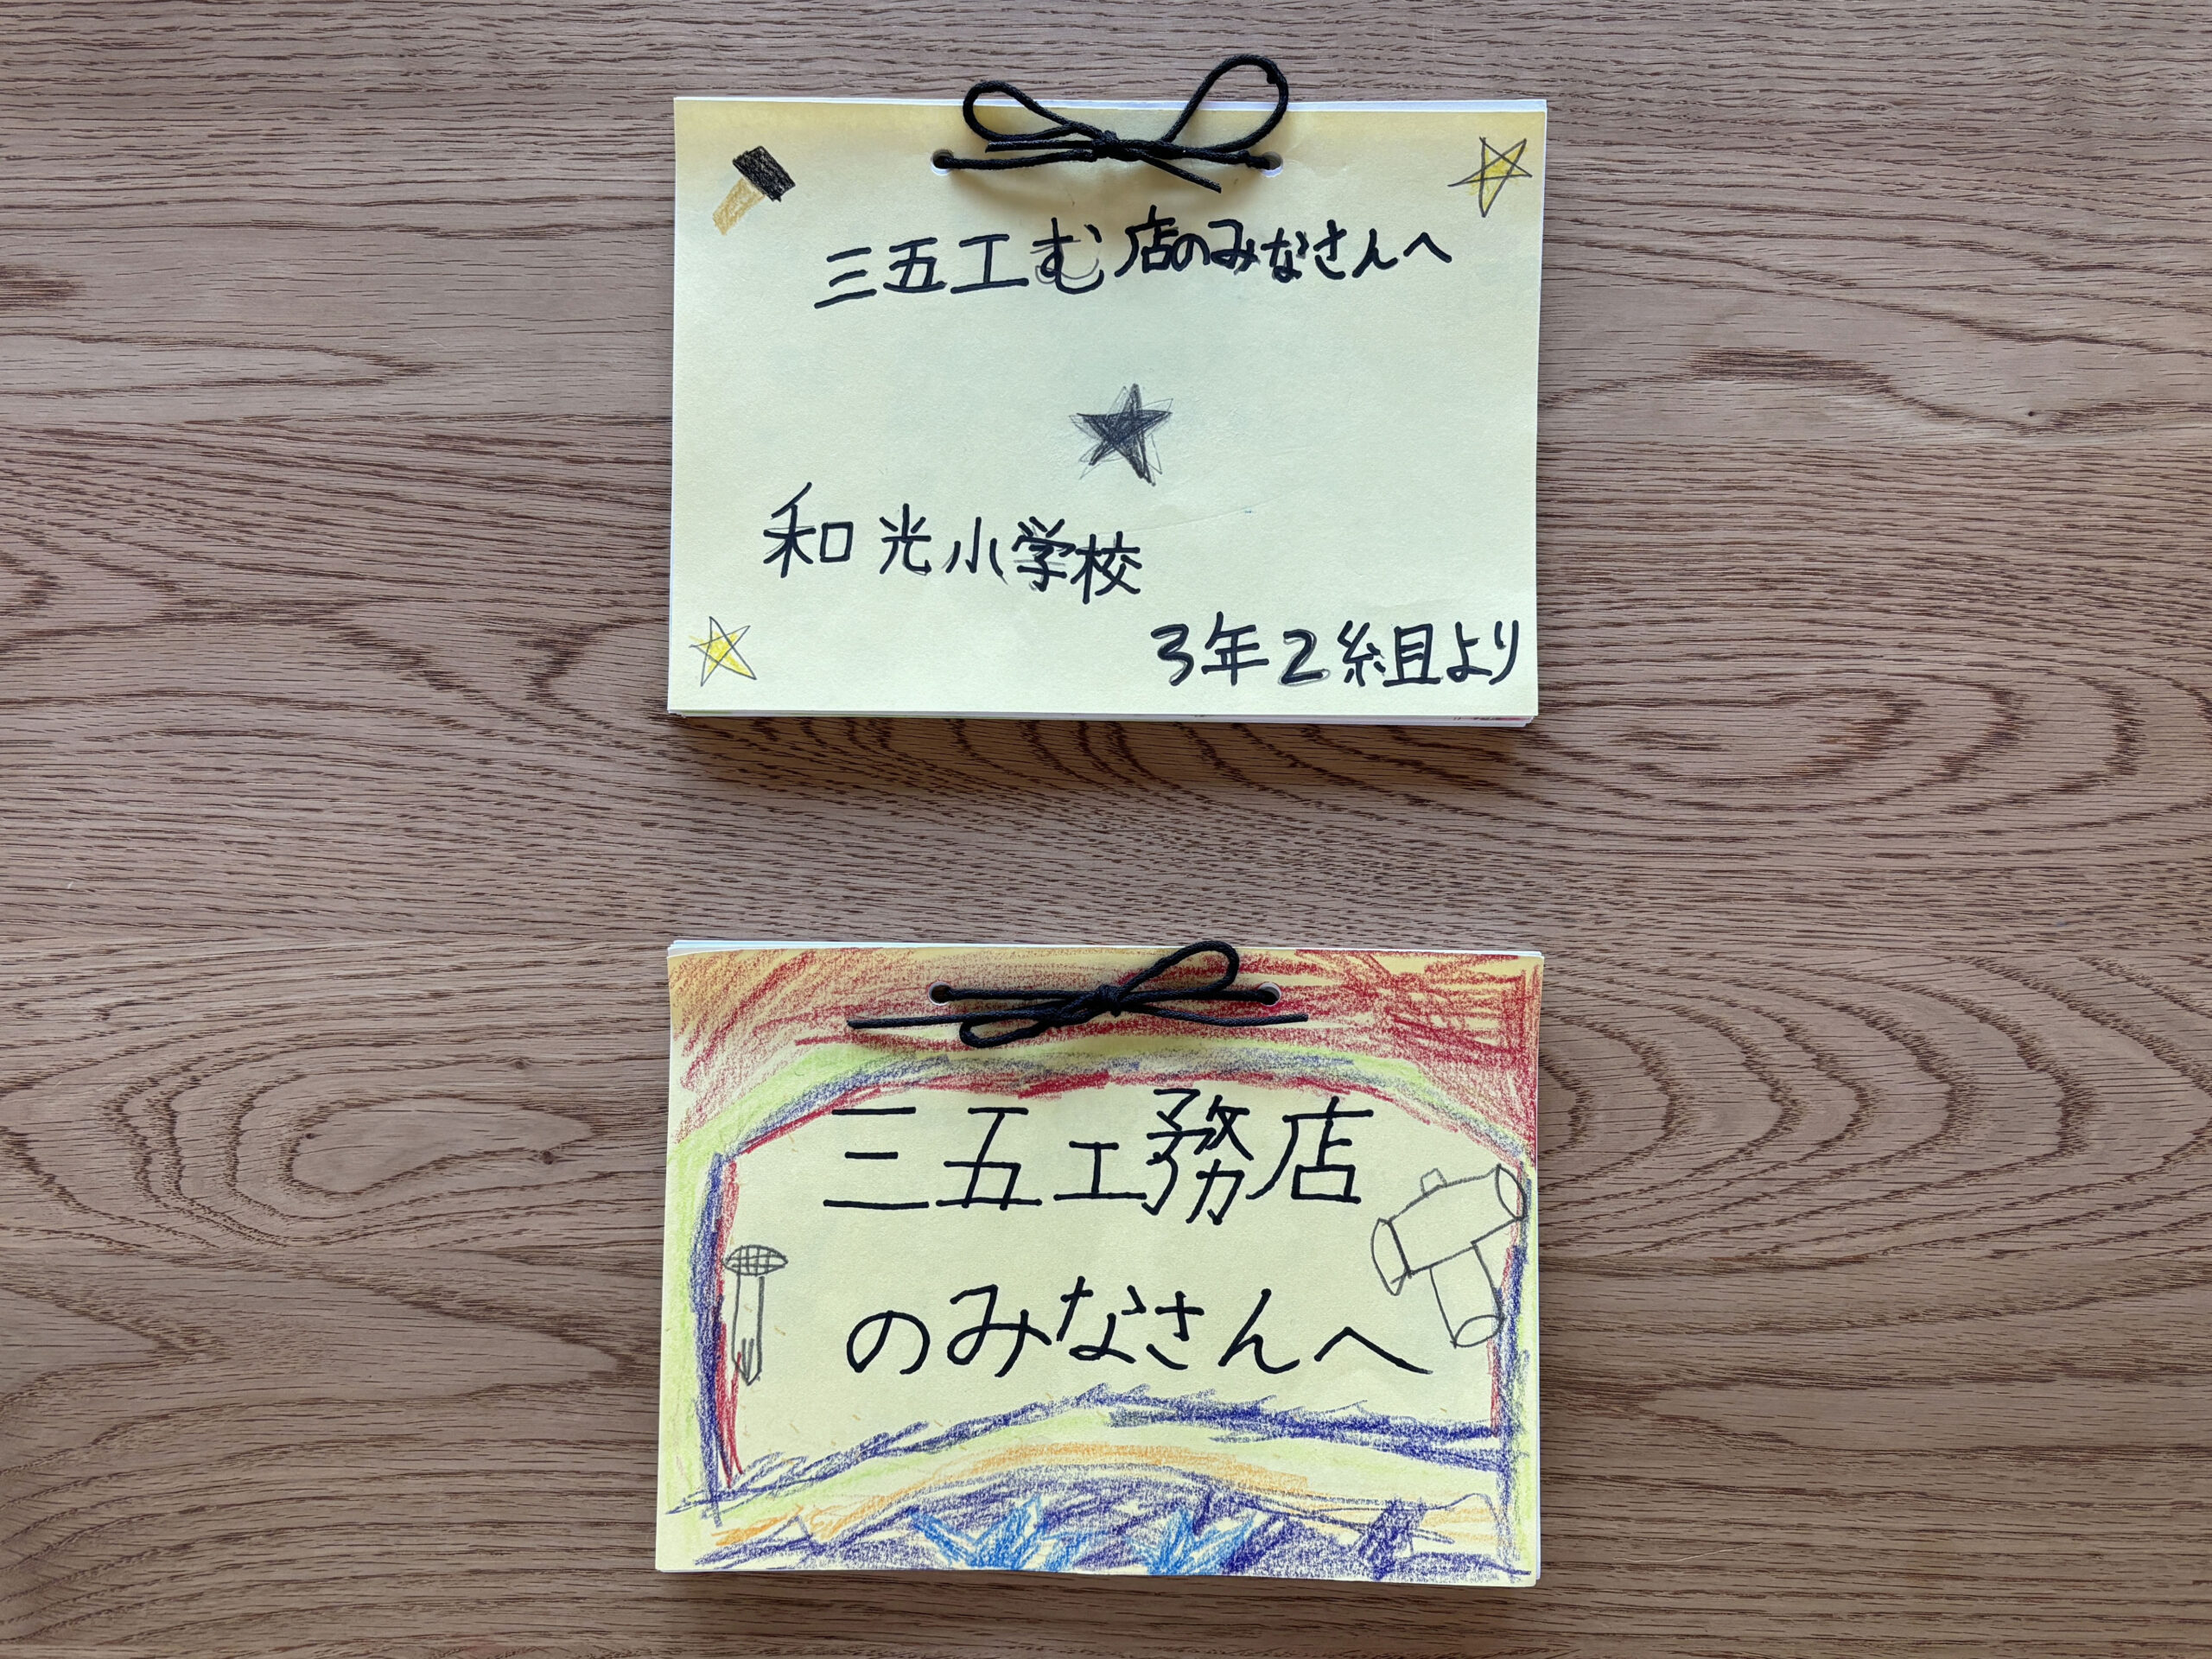 三五工む店のみなさんへ
和光小学校
3年2組より
三五工務店
のみなさんへ